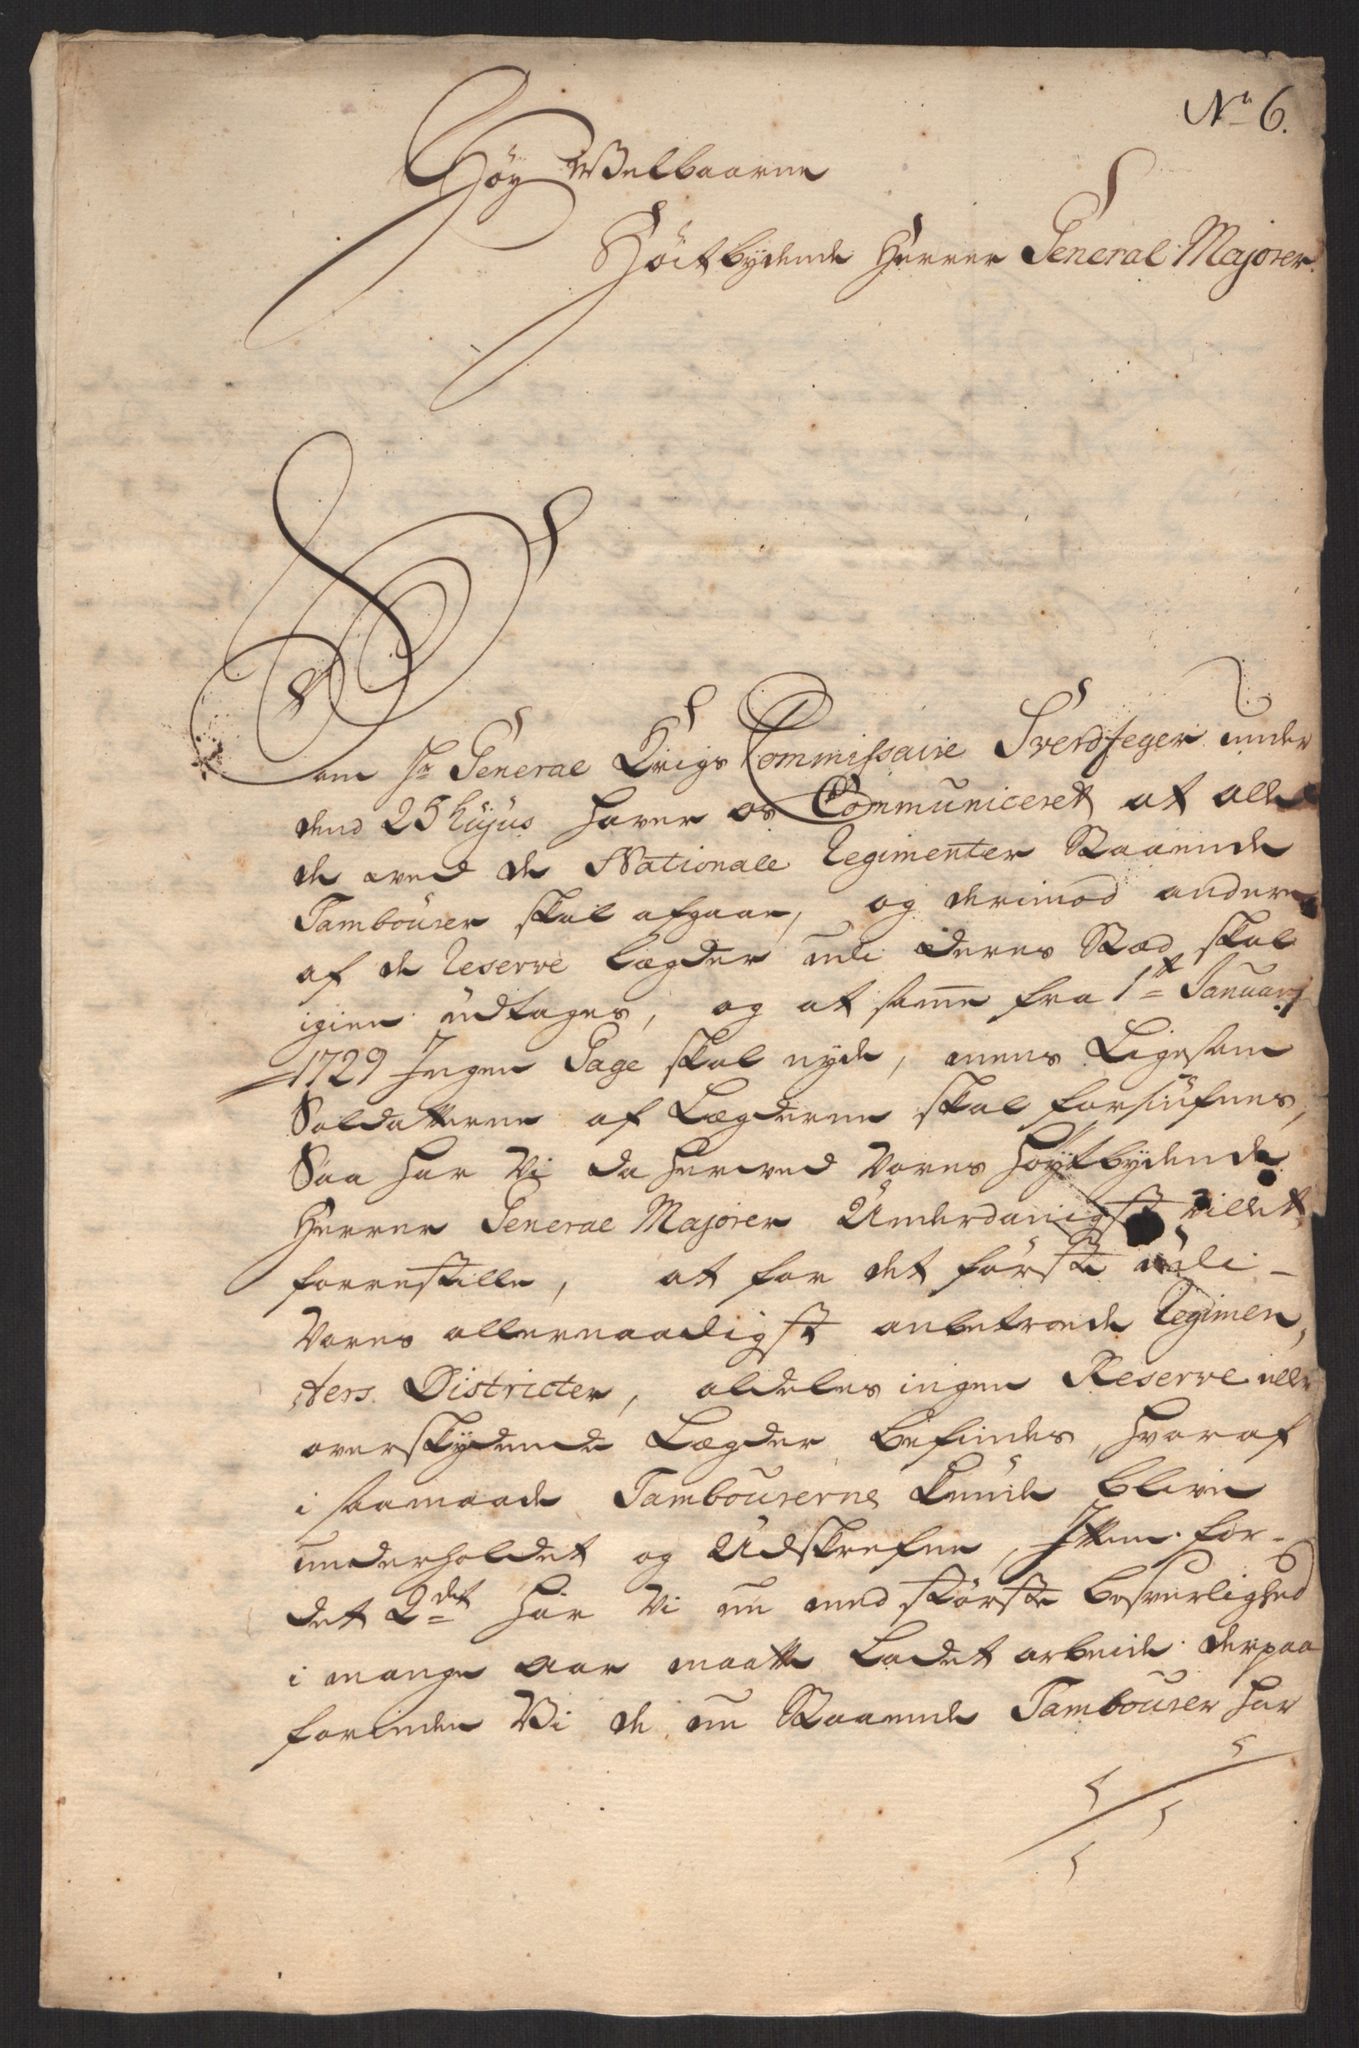 No 6.
Høy Welbaarne
Høitbydende Herrer General Majorer
Som Hr General Krigs Commissaire Sverdfeger under
dend 25 hujus haver os Communiceret at alle
de wed de Nationale Regimenter Staaende
Tambourer skal afgaae, og derimod andere
af de Reserve Lægder udi deres Stæd skal
igien udtages, og at samme fra 1te Januarj
1729 Ingen Gage skal nyde, mens Ligesom
Soldatterne af Lægderne skal forsiufnes,
Saa har Vi da herved Vores Høytbydende
Herrer General Majorer Underdanigst villet
forrestille, at for det første udi
Vores allernaadigst anbetroede Regimen,
ters Districter, aldeles ingen Reserve eller
overskydende Lægder befindes, hvoraf
i saamaade Tambourerne kunde blive
underholdet og Udskrefne, Item for-
det 2det har Vi nu med største besverlighed
i mange aar maatte Ladet arbeide derpaa
forinden Vi de nu Staaende Tambourer har